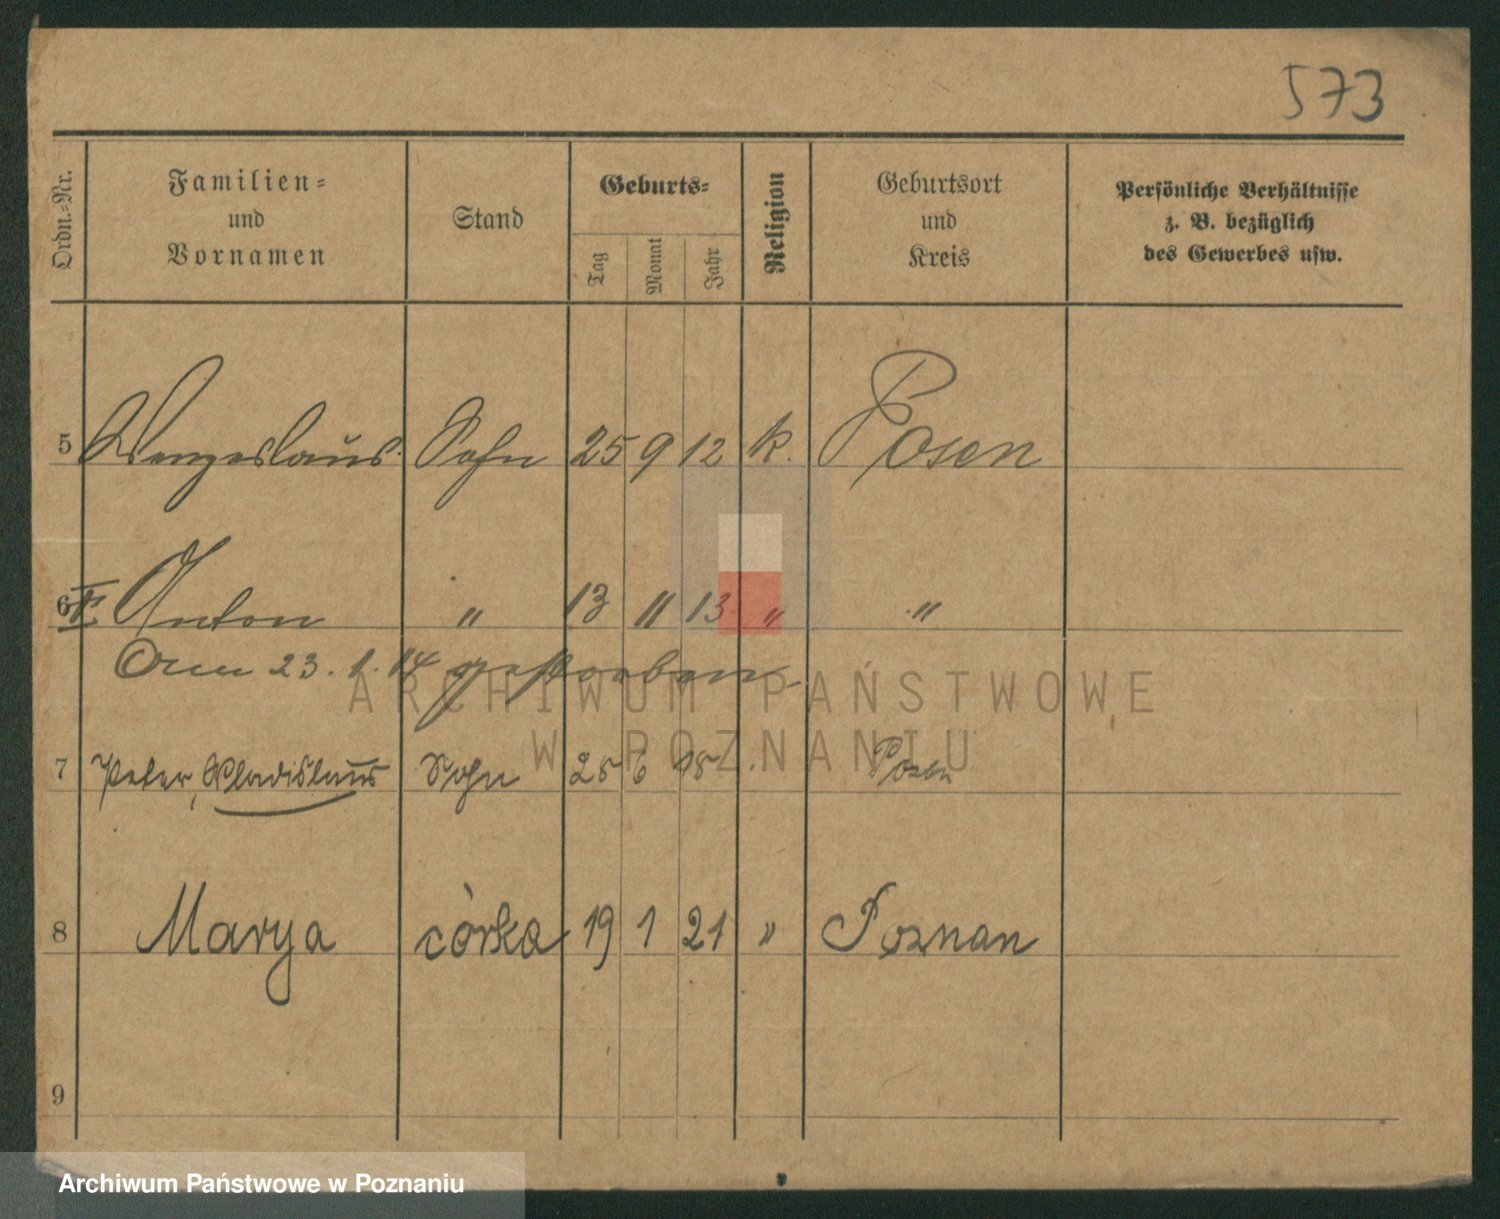 573
Ordn.-Nr.
Familien-
und
Vornamen
Stand
Geburts-
Tag
Monat
Jahr
Religion
Geburtsort
und
Kreis
Persönliche Verhältnisse
z. B. bezüglich
des Gewerbes usw.
5 Wenzeslaus Sohn 25 9 12 k. Posen
6 Anton " 13 11 13 " "
Am 23. 1. 14 gestorben
7 Peter, Wladislaus Sohn 25 6 15 Posen
8 Marya córka 19 1 21 " Poznan
9
ARCHIWUM PAŃSTWOWE
W POZNANIU
Archiwum Państwowe w Poznaniu